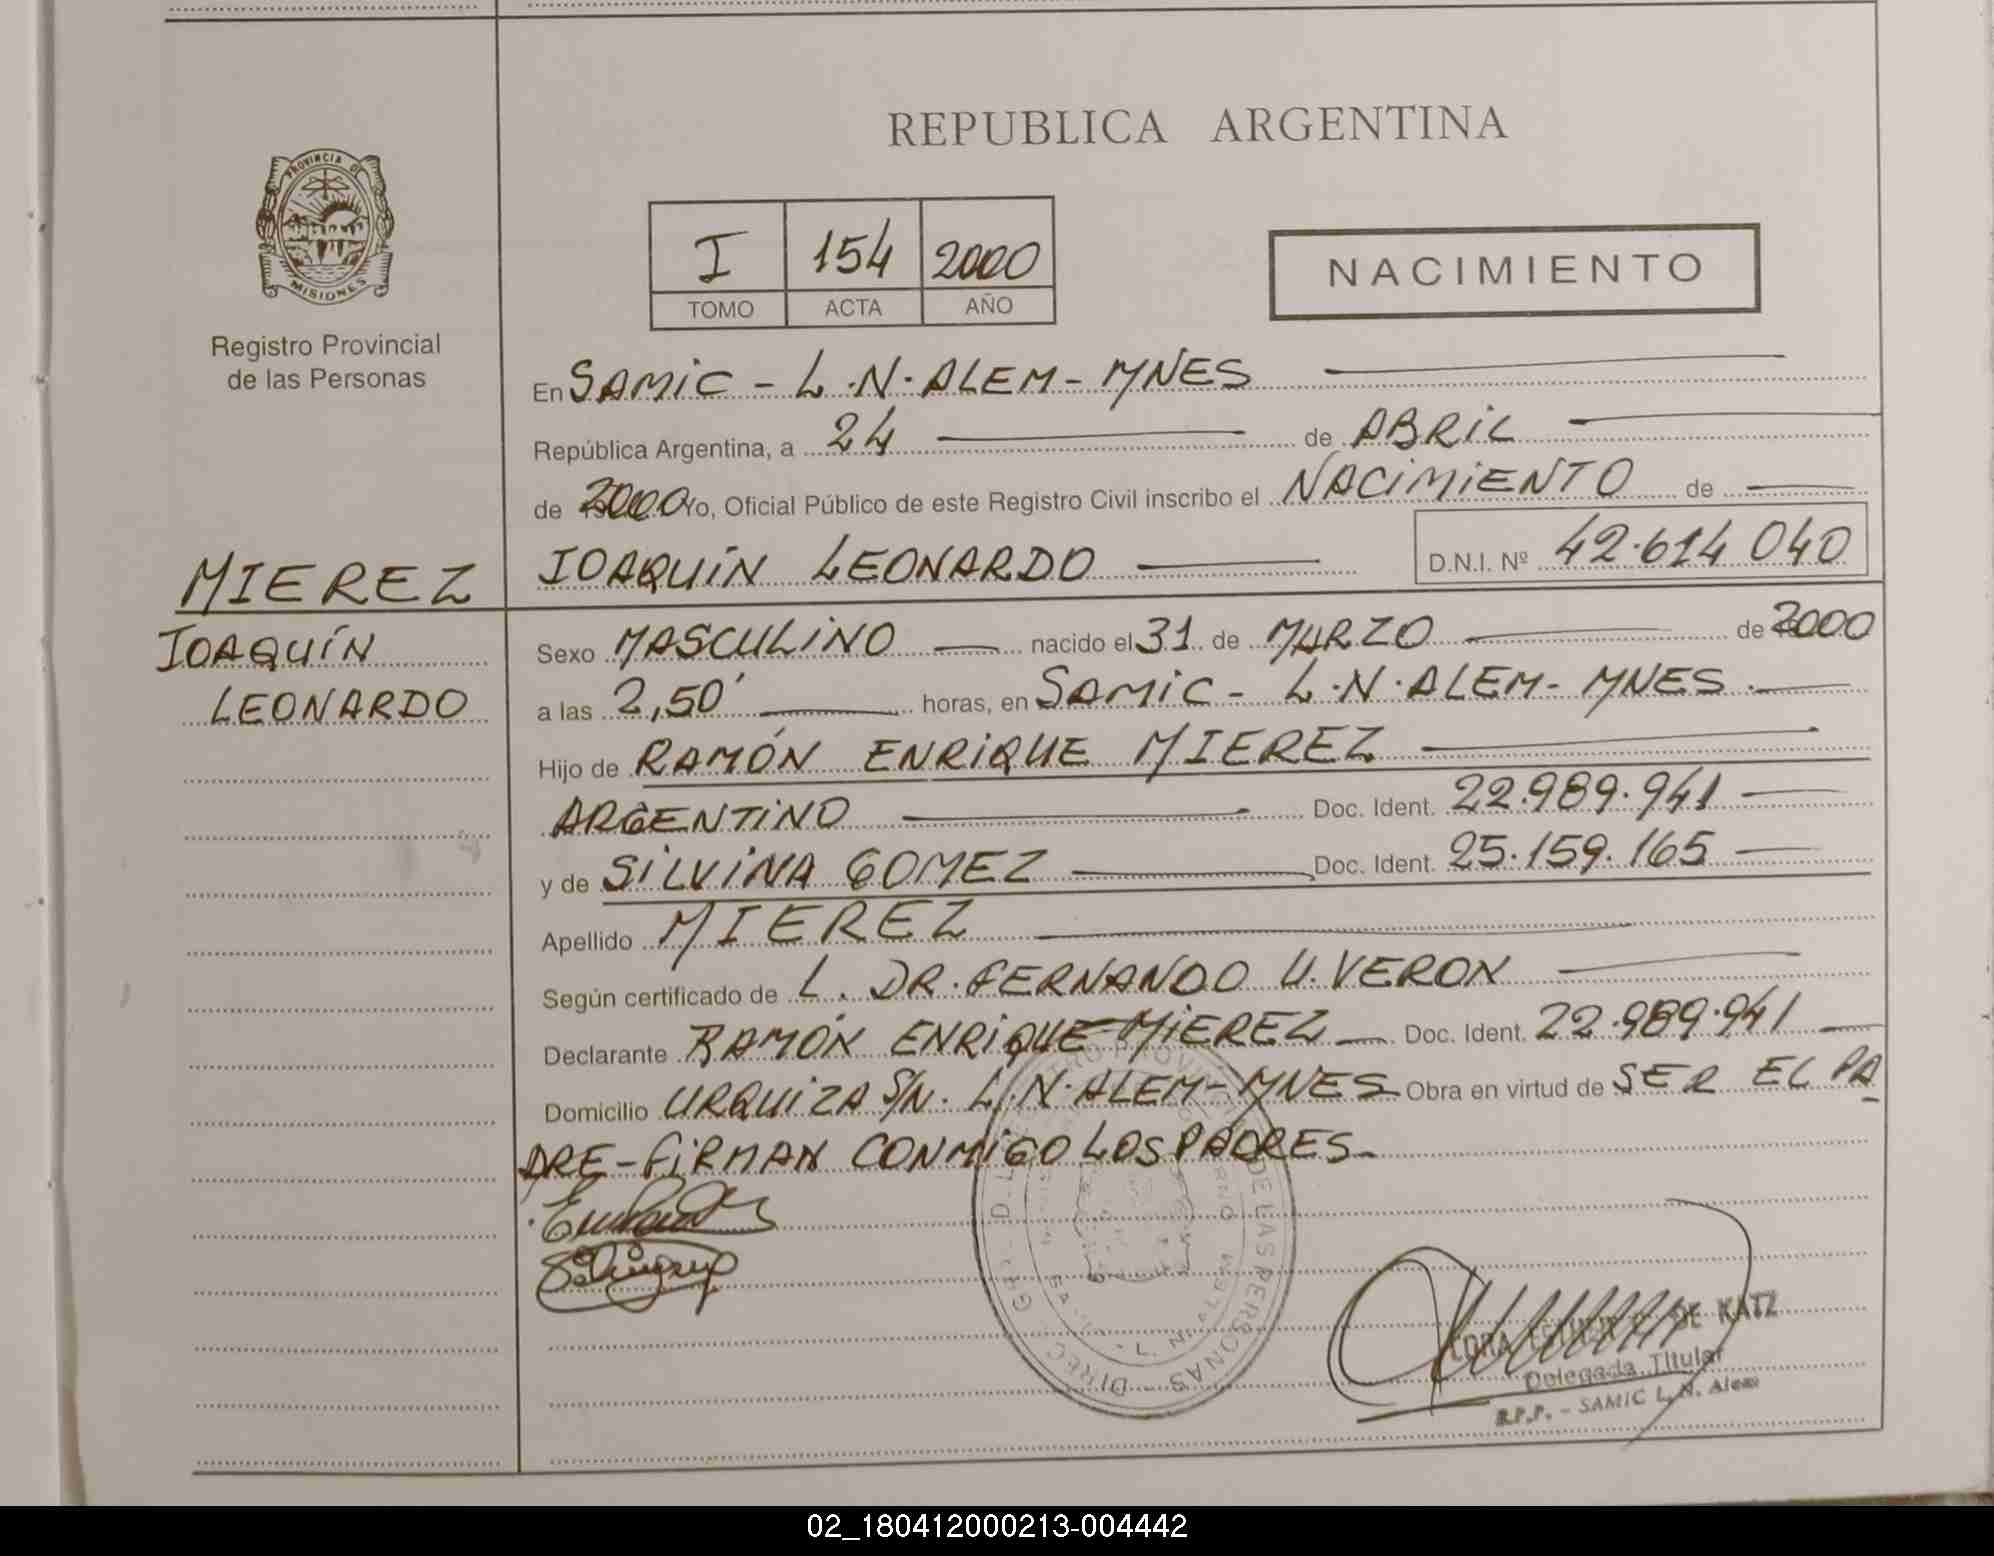 REPUBLICA ARGENTINA
PROVINCIA DE
MISIONES
Registro Provincial
de las Personas
I 154 2000
TOMO ACTA AÑO
NACIMIENTO
En SAMIC - L.N. ALEM - MNES
República Argentina, a 24 de ABRIL
de 2000 Yo, Oficial Público de este Registro Civil inscribo el NACIMIENTO de
JOAQUÍN LEONARDO D.N.I. Nº 42.614.040
MIEREZ
JOAQUÍN
LEONARDO
Sexo MASCULINO nacido el 31 de MARZO de 2000
a las 2,50' horas, en SAMIC - L.N. ALEM - MNES.
Hijo de RAMÓN ENRIQUE MIEREZ
ARGENTINO Doc. Ident. 22.989.941
y de SILVINA GOMEZ Doc. Ident. 25.159.165
Apellido MIEREZ
Según certificado de L. DR. FERNANDO U. VERON
Declarante RAMÓN ENRIQUE MIEREZ Doc. Ident. 22.989.941
Domicilio URQUIZA S/N. L.N. ALEM - MNES Obra en virtud de SER EL PA
DRE - FIRMAN CONMIGO LOS PADRES.
DE KATZ
Delegada Titular
R.P.P. - SAMIC L. N. Alem
02_180412000213-004442